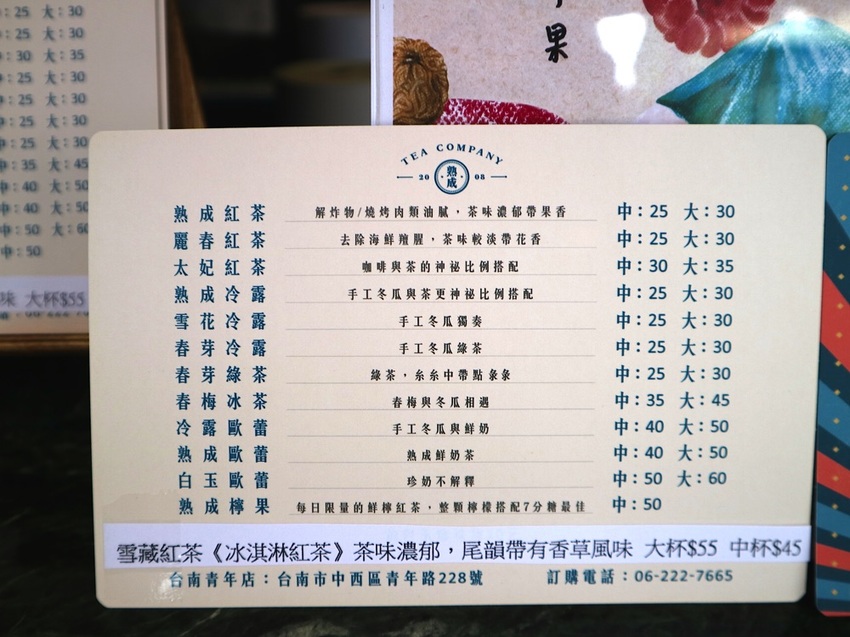 果
:25 大:30
:25 大:30
:30 大:35
:25 大:30
:25 大:30
中:25 大:30
中:25 大:30
中:35 大:45
中:40 大:50
中:40 大:50
中:50 大:60
中:50
味 大杯$55
TEA COMPANY
20 熟成 08
熟成紅茶 解炸物/燒烤肉類油膩,茶味濃郁帶果香 中:25 大:30
麗春紅茶 去除海鮮羶腥,茶味較淡帶花香 中:25 大:30
太妃紅茶 咖啡與茶的神祕比例搭配 中:30 大:35
熟成冷露 手工冬瓜與茶更神祕比例搭配 中:25 大:30
雪花冷露 手工冬瓜獨奏 中:25 大:30
春芽冷露 手工冬瓜綠茶 中:25 大:30
春芽綠茶 綠茶,糸糸中帶點彖彖 中:25 大:30
春梅冰茶 春梅與冬瓜相遇 中:35 大:45
冷露歐蕾 手工冬瓜與鮮奶 中:40 大:50
熟成歐蕾 熟成鮮奶茶 中:40 大:50
白玉歐蕾 珍奶不解釋 中:50 大:60
熟成檸果 每日限量的鮮檸紅茶,整顆檸檬搭配7分糖最佳 中:50
雪藏紅茶《冰淇淋紅茶》茶味濃郁,尾韻帶有香草風味 大杯$55 中杯$45
台南青年店:台南市中西區青年路228號 訂購電話:06-222-7665